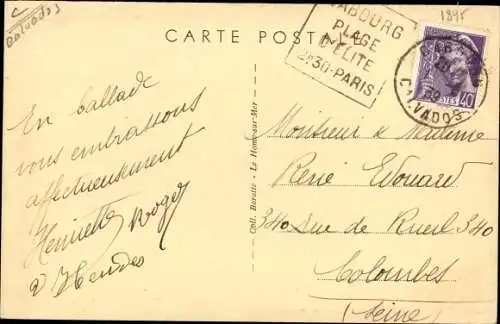 C
Calvados
1895
CARTE POSTALE
CABOURG
PLAGE
D'ELITE
2H30-PARIS
CABOURG
CALVADOS
POSTES
40
En ballade
vous embrassons
affectueusement
Henriette Roger
Coll. Baratte - Le Home-sur-Mer
Monsieur & Madame
René Edouard
340 Rue de Rueil 340
Colombes
(Seine)